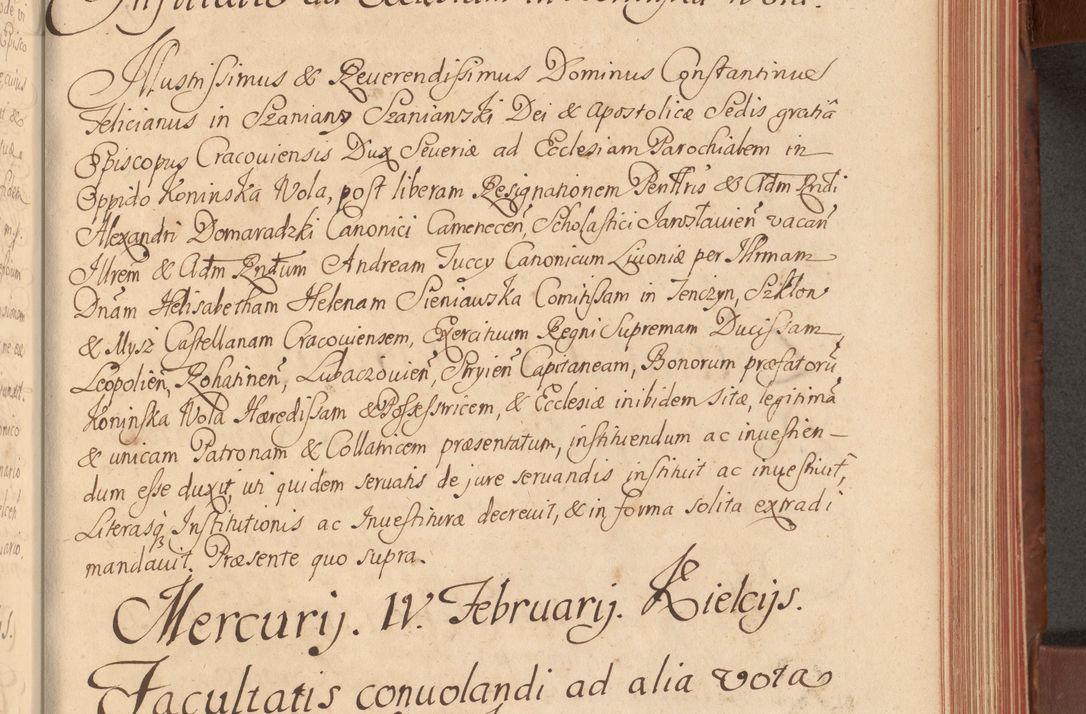 Institutio ad Ecclesiam in Koninska Wola.
Illustrissimus & Reverendissimus Dominus Constantinus
Felicianus in Szaniany Szanianszki Dei & Apostolicæ Sedis gratiâ
Episcopus Cracoviensis Dux Severiæ ad Ecclesiam Parochialem in
Oppido Koninska Wola, post liberam Resignationem Penttris & Adm Rndi
Alexandri Domaradzki Canonici Camenecen̄, Scholastici Jaroslavien̄ vacan̄
Illrem & Adm Rndum Andream Tuccy Canonicum Livoniæ per Illrmam
Dnam Helisabetham Helenam Sieniavska Comitissam in Tenczyn, Szklow
& Mysz Castellanam Cracoviensem, Exercituum Regni Supremam Ducissam,
Leopolien̄, Rohatinen̄, Lubaczovien̄, Stryien̄ Capitaneam, Bonorum præfatorū
Koninska Wola Hæredissam & Possestricem, & Ecclesiæ inibidem sitæ, legitimā
& unicam Patronam & Collatricem præsentatum, instituendum ac investien-
dum esse duxit, uti quidem servatis de jure servandis instituit ac investivit,
Literasq; Institutionis ac Investituræ decrevit, & in forma solita extradi
mandavit. Præsente quo supra.
Mercurij. IV. Februarij. Kielcijs.
Facultatis convolandi ad alia vota